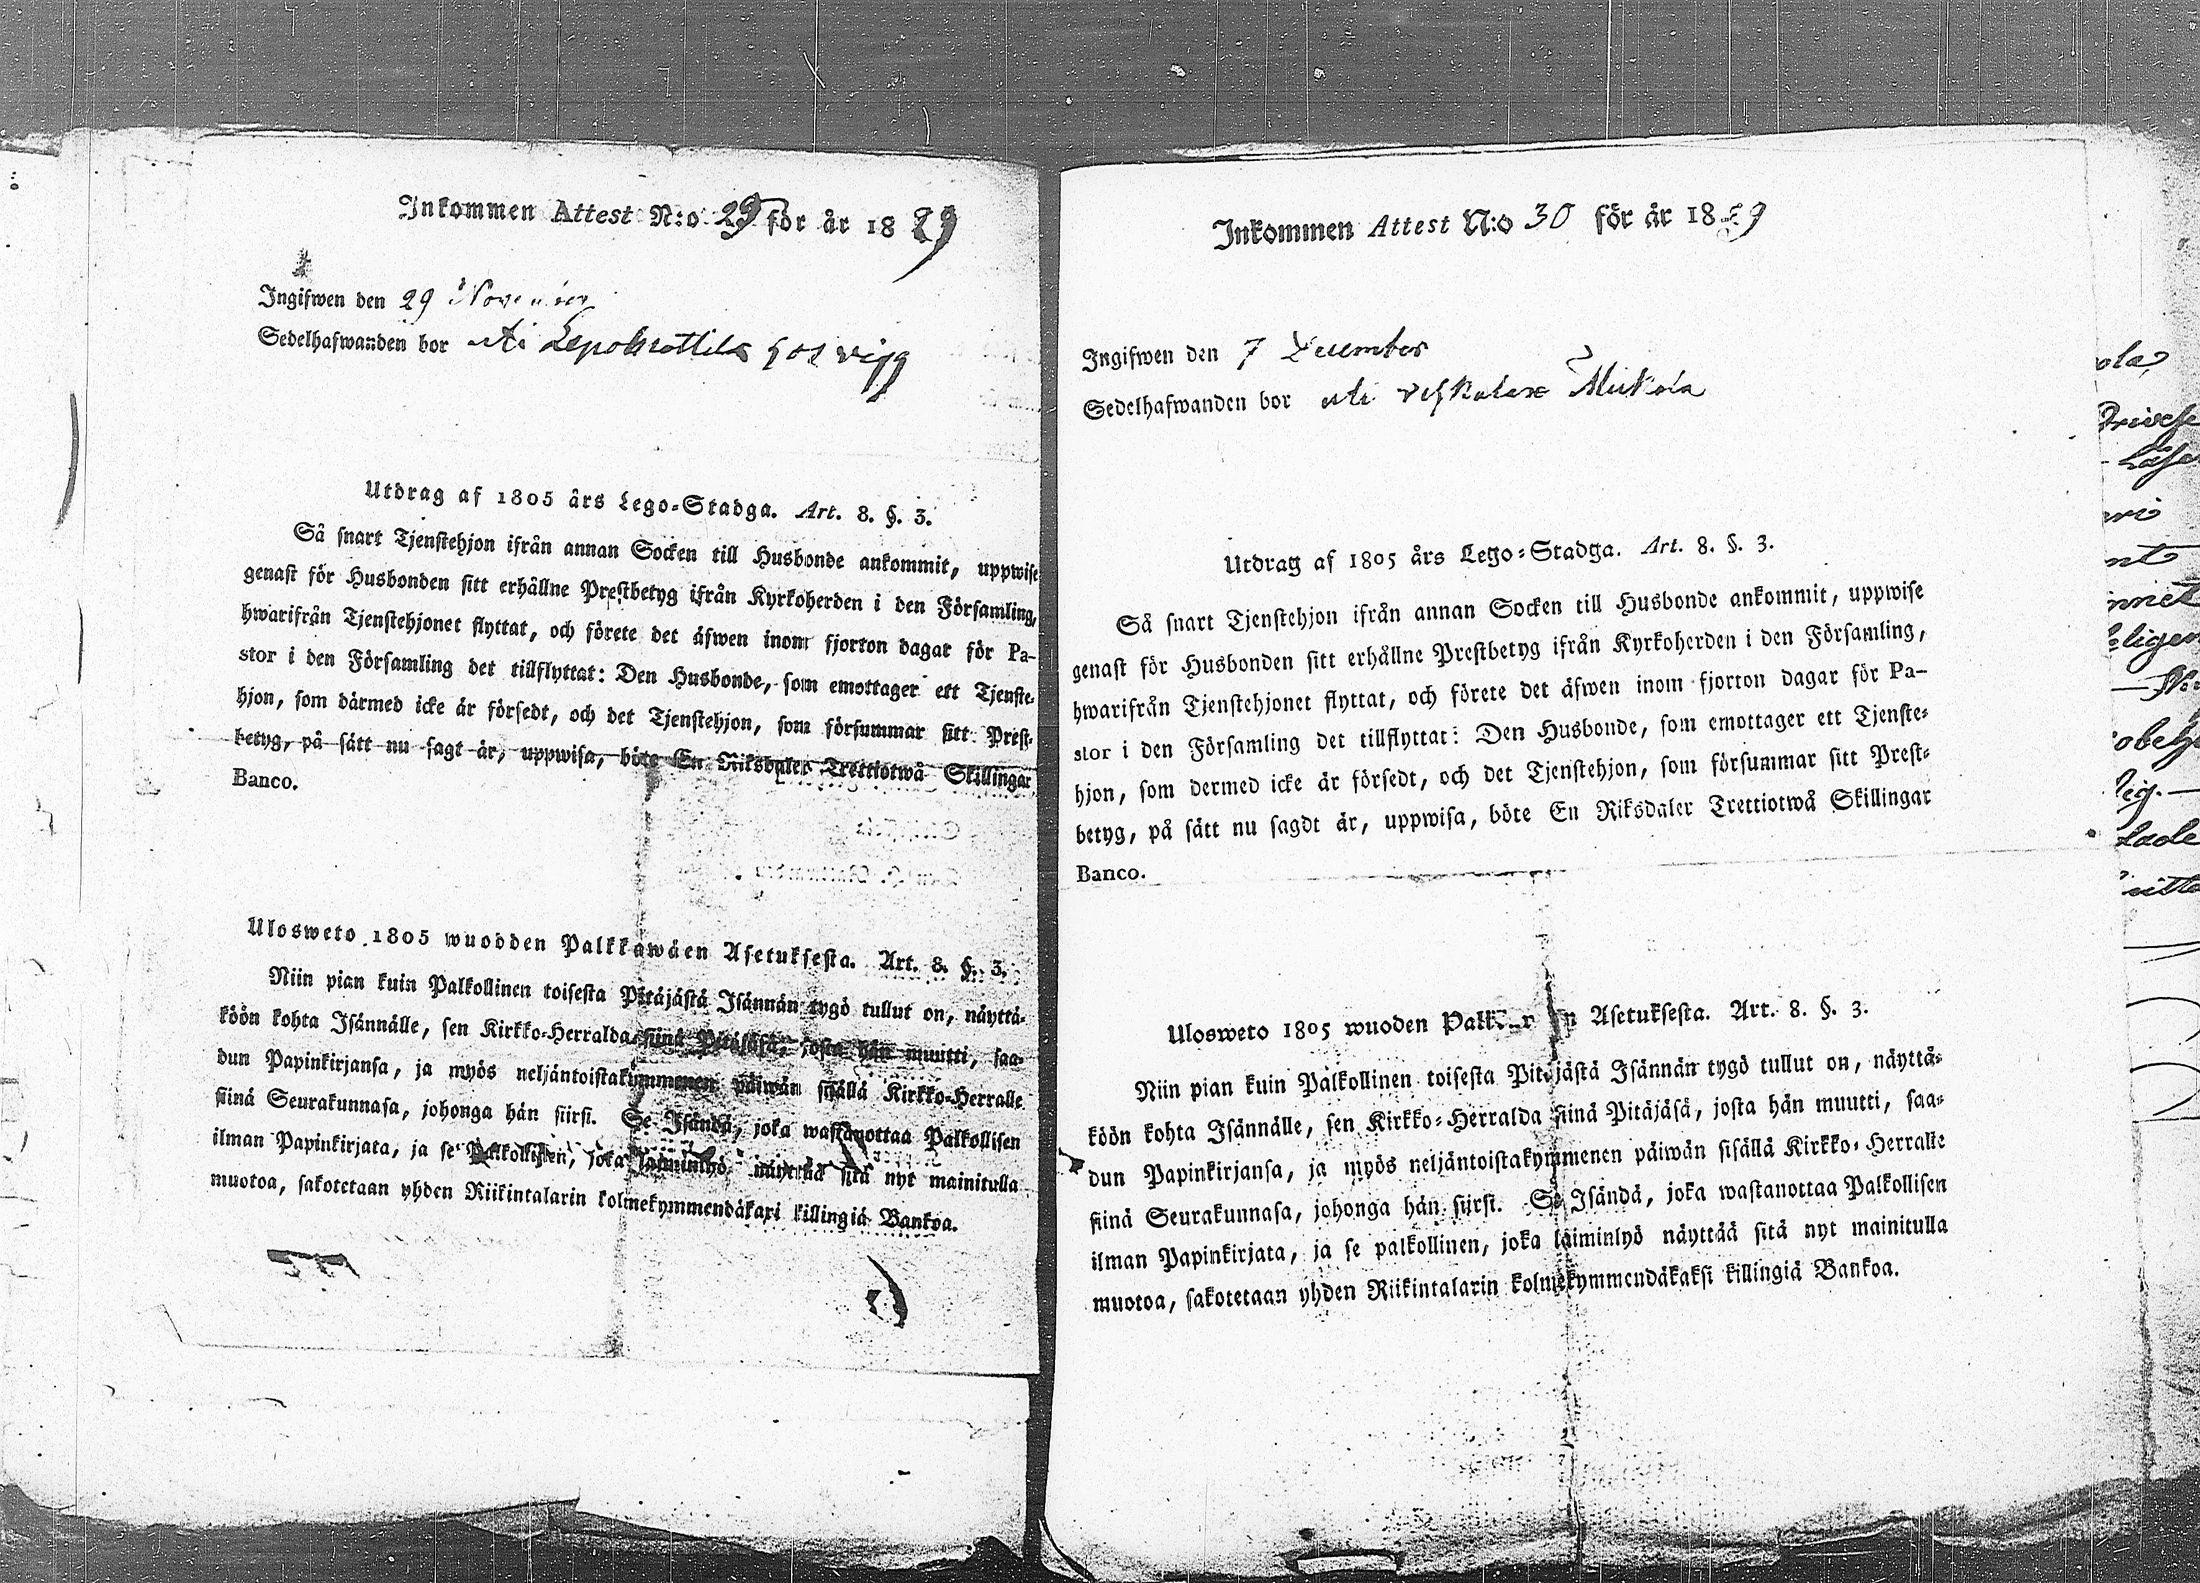 Inkommen Attest N:o 29 för år 1829
Ingifwen den 29 November
Sedelhafwanden bor uti
Utdrag af 1805 års Lego-Stadga. Art. 8. §. 3.
Så snart Tjenstehjon ifrån annan Socken till Husbonde ankommit, uppwise
genast för Husbonden sitt erhållne Prestbetyg ifrån Kyrkoherden i den Församling,
hwarifrån Tjenstehjonet flyttat, och förete det äfwen inom fjorton dagar för Pa-
stor i den Församling det tillflyttat: Den Husbonde, som emottager ett Tjenste-
hjon, som därmed icke är försedt, och det Tjenstehjon, som försummar sitt Prest-
betyg, på sätt nu sagt är, uppwisa, böte En Riksdaler Trettiotwå Skillingar
Banco.
Ulosweto 1805 wuodden Palkkawäen Asetuksesta. Art. 8. §. 3.
Niin pian kuin Palkollinen toisesta Pitäjästä Isännän tygö tullut on, näyttä-
köön kohta Isännälle, sen Kirkko-Herralda siinä Pitäjäsä, josta hän muutti, saa-
dun Papinkirjansa, ja myös neljäntoistakymmenen päiwän sisällä Kirkko-Herralle
siinä Seurakunnasa, johonga hän siirsi. Se Isändä, joka wastanottaa Palkollisen
ilman Papinkirjata, ja se Palkollinen, joka laiminlyö näyttää sitä nyt mainitulla
muotoa, sakotetaan yhden Riikintalarin kolmekymmendäkaxi killingiä Bankoa.
Inkommen Attest N:o 30 för år 1829
Ingifwen den 7 December
Sedelhafwanden bor uti
Utdrag af 1805 års Lego-Stadga. Art. 8. §. 3.
Så snart Tjenstehjon ifrån annan Socken till Husbonde ankommit, uppwise
genast för Husbonden sitt erhållne Prestbetyg ifrån Kyrkoherden i den Församling,
hwarifrån Tjenstehjonet flyttat, och förete det äfwen inom fjorton dagar för Pa-
stor i den Församling det tillflyttat: Den Husbonde, som emottager ett Tjenste-
hjon, som dermed icke är försedt, och det Tjenstehjon, som försummar sitt Prest-
betyg, på sätt nu sagdt är, uppwisa, böte En Riksdaler Trettiotwå Skillingar
Banco.
Ulosweto 1805 wuoden Asetuksesta. Art. 8. §. 3.
Niin pian kuin Palkollinen toisesta Pitäjästä Isännän tygö tullut on, näyttä-
köön kohta Isännälle, sen Kirkko-Herralda siinä Pitäjäsä, josta hän muutti, saa-
dun Papinkirjansa, ja myös neljäntoistakymmenen päiwän sisällä Kirkko-Herralle
siinä Seurakunnasa, johonga hän siirsi. Se Isändä, joka wastanottaa Palkollisen
ilman Papinkirjata, ja se palkollinen, joka laiminlyö näyttää sitä nyt mainitulla
muotoa, sakotetaan yhden Riikintalarin kolmekymmendäkaksi killingiä Bankoa.